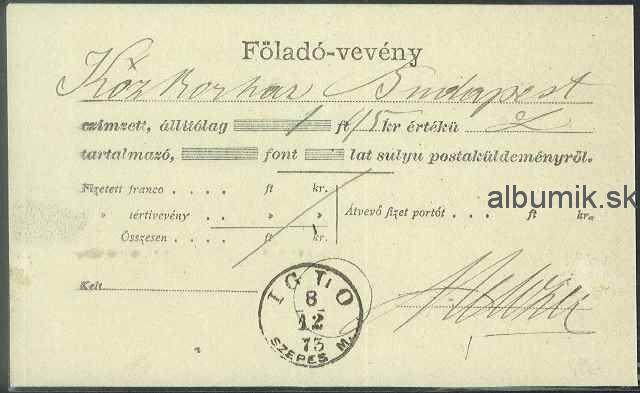 Föladó-vevény
Közkorház Budapest
czimzett, állitólag 1 ft 15 kr értékü
tartalmazó, font lat sulyu postaküldeményről.
Fizetett franco . . . . ft kr.
" tértivevény . . " "
Összesen . . ft kr.
Átvevő fizet portót . . . ft kr.
albumik.sk
Kelt
IGLO
8
12
75
SZEPES M.